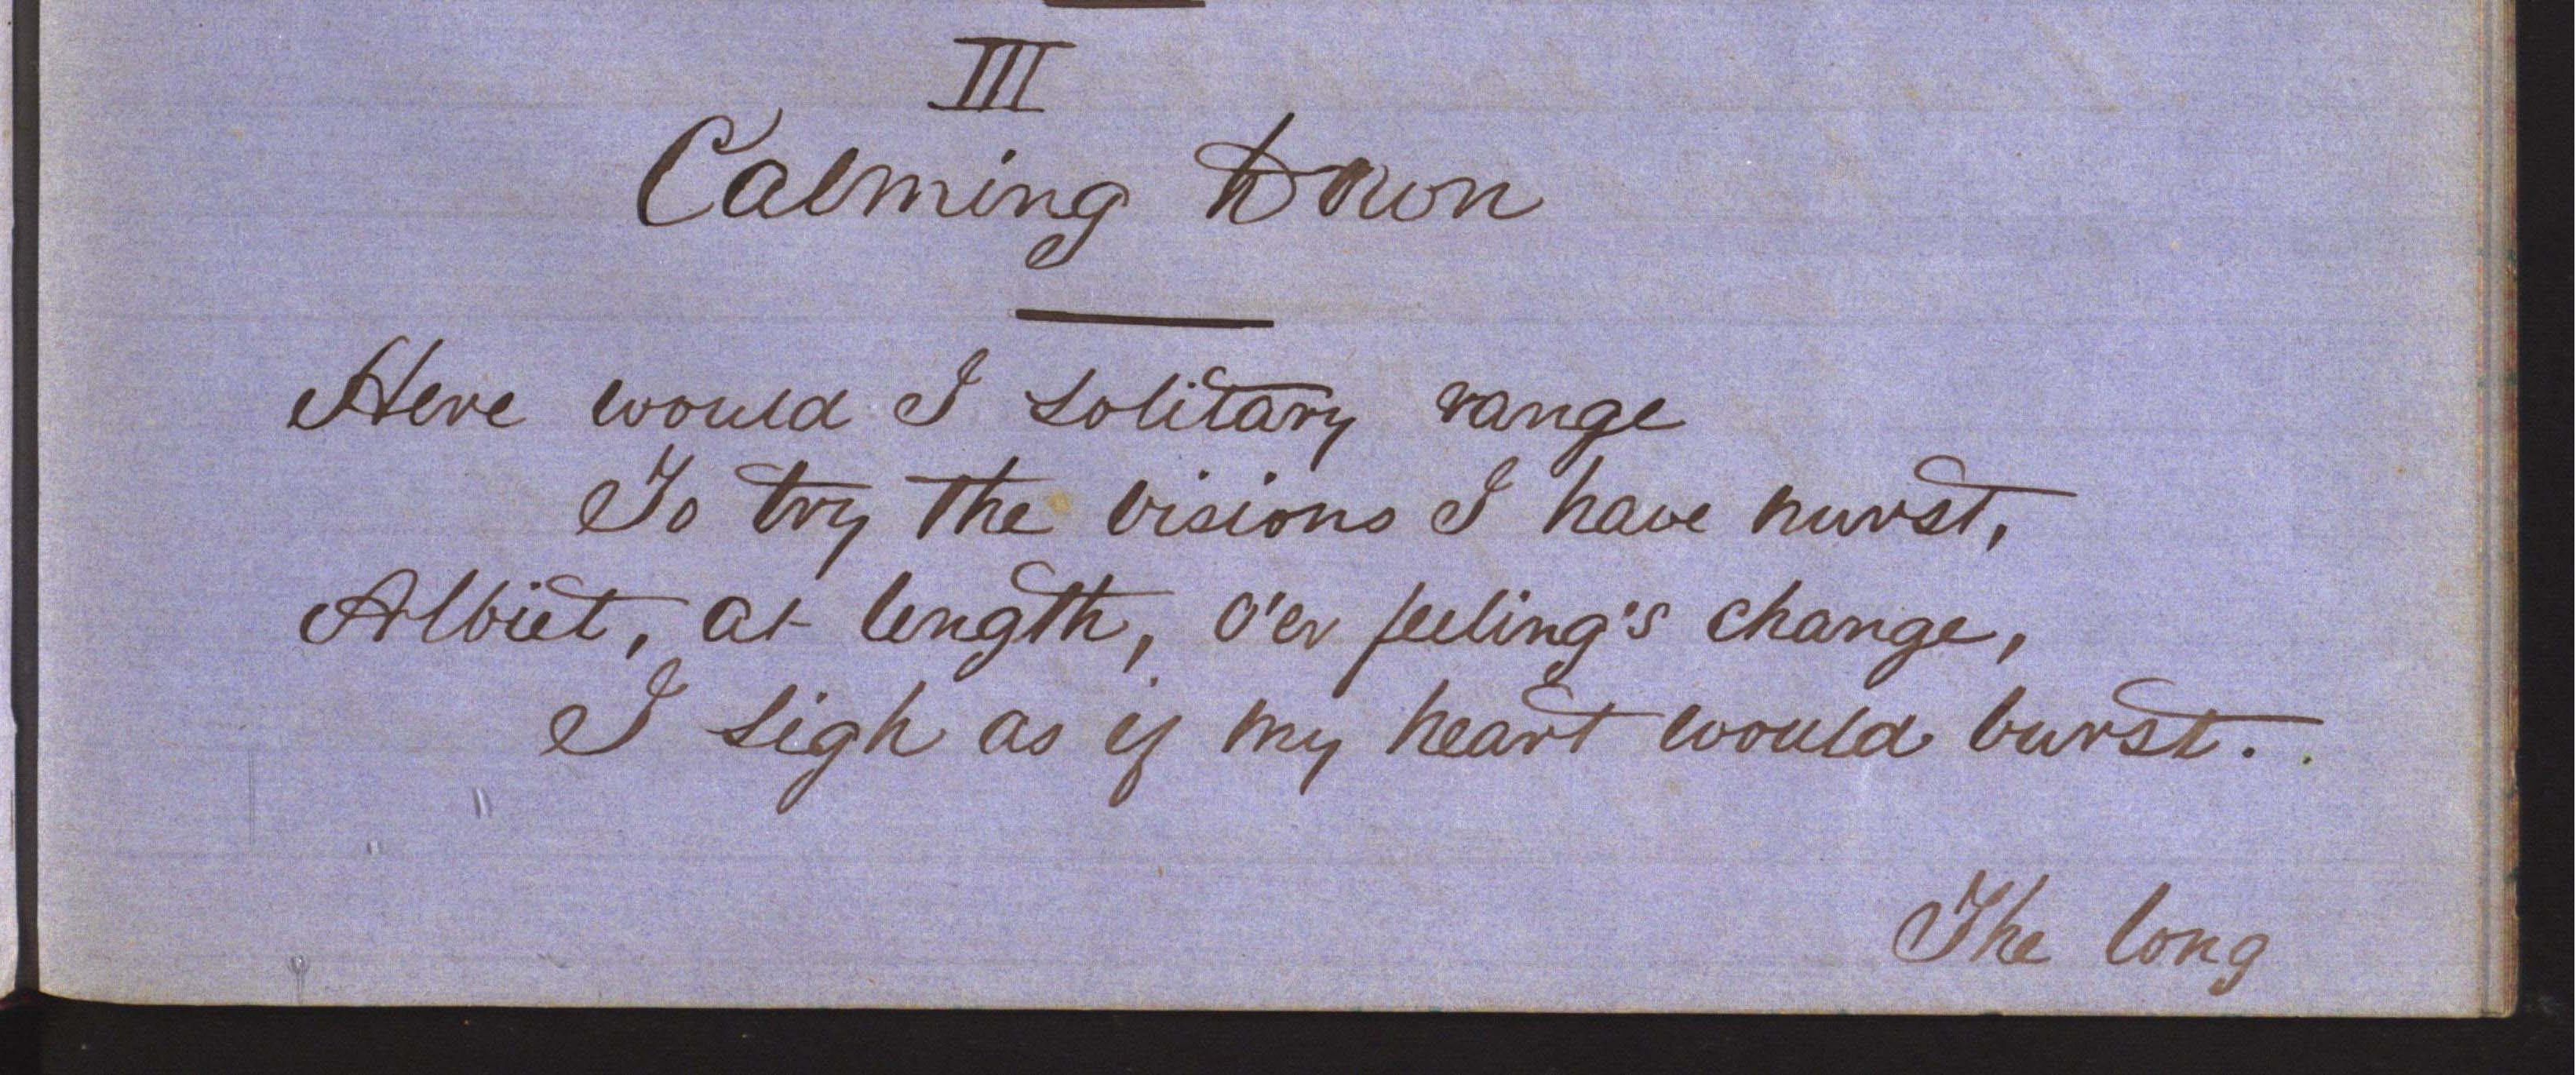 III
Calming Down
Here would I solitary range
To try the visions I have nurst,
Albiet, at length, o'er feeling's change,
I sigh as if my heart would burst.
The long